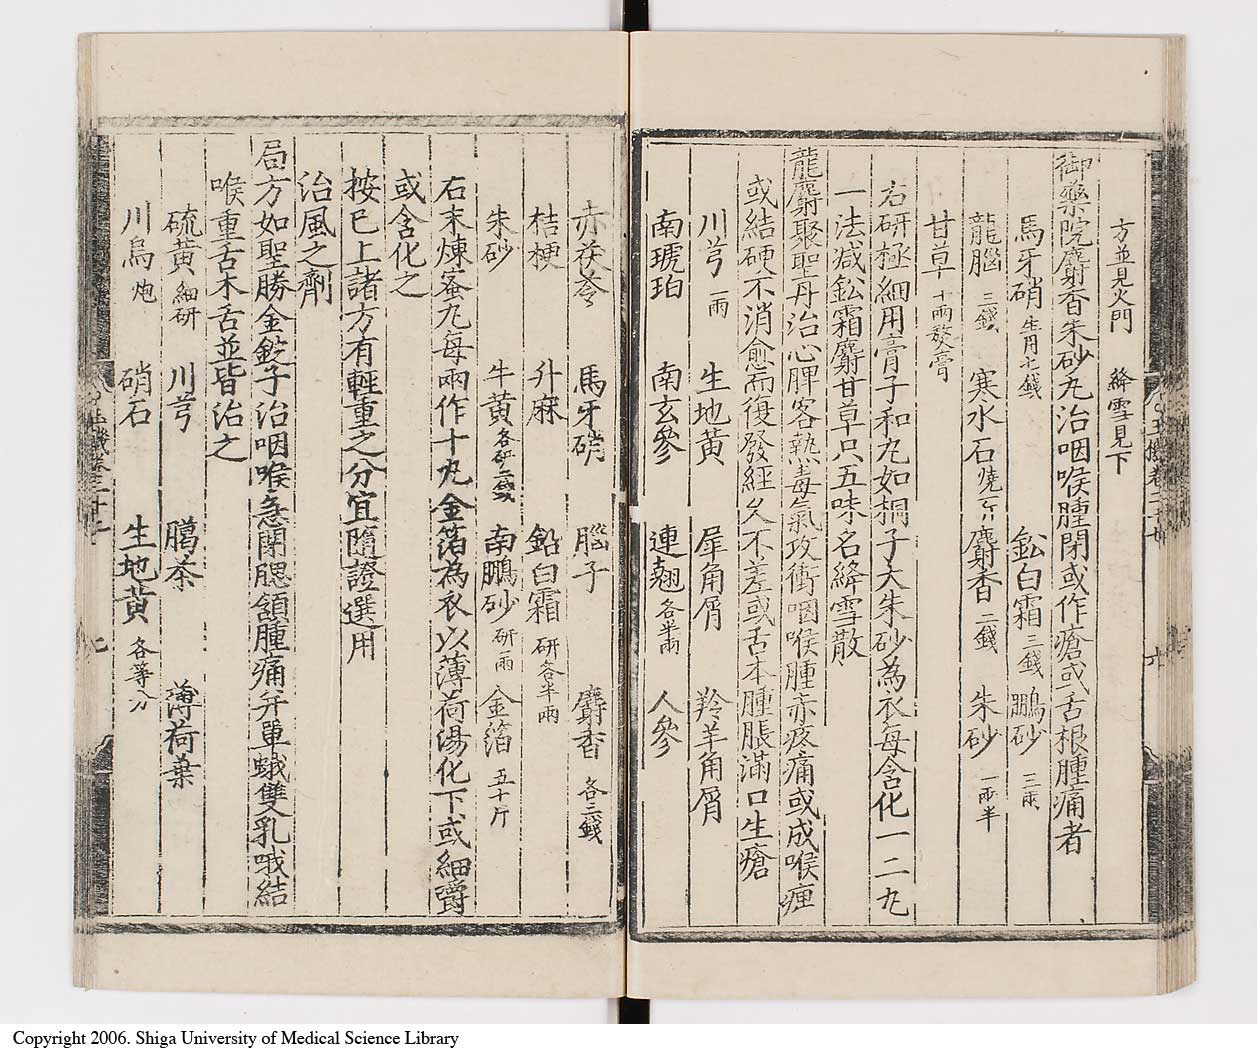 方並見火門　絳雪見下
御藥院麝香朱砂丸治咽喉腫閉或作瘡或舌根腫痛者
馬牙硝生用七錢　鈆白霜三錢　鵬砂三兩
龍腦三錢　寒水石燒　麝香二錢　朱砂一兩半
甘草十兩熬膏
右研極細用膏子和丸如桐子大朱砂為衣每含化一二丸
一法減鈆霜麝甘草只五味名絳雪散
龍麝聚聖丹治心脾客熱毒氣攻衝咽喉腫赤疼痛或成喉痺
或結硬不消愈而復發經久不差或舌本腫脹滿口生瘡
川芎一兩　生地黃　犀角屑　羚羊角屑
南琥珀　南玄參　連翹各半兩　人參
赤茯苓　馬牙硝　腦子　麝香各三錢
桔梗　升麻　鉛白霜研各半兩
朱砂　牛黃各研二錢　南鵬砂研一兩　金箔五十片
右末煉蜜丸每兩作十丸金箔為衣以薄荷湯化下或細嚼
或含化之
按已上諸方有輕重之分宜隨證選用
治風之劑
局方如聖勝金錠子治咽喉急閉腮頷腫痛并單蛾雙乳哦結
喉重舌木舌並皆治之
硫黃細研　川芎　臈茶　薄荷葉
川烏炮　硝石　生地黃各等分
七
Copyright 2006. Shiga University of Medical Science Library